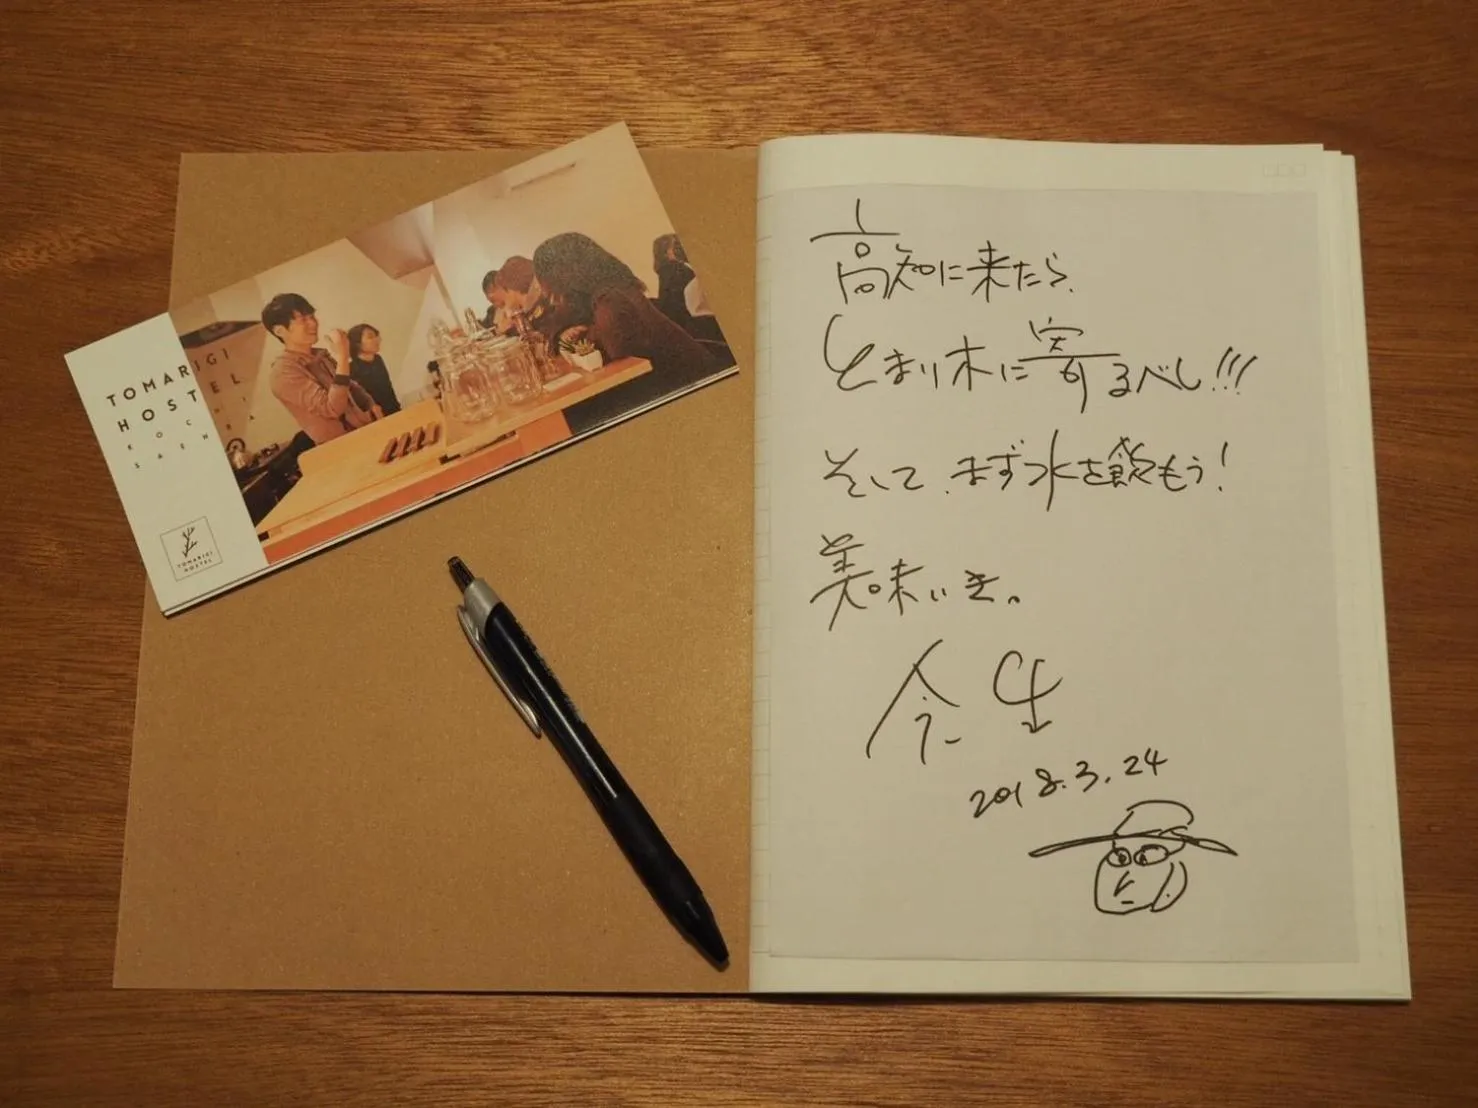 TOMARIGI
HOSTEL
TOMARIGI
HOSTEL
高知に来たら、
とまり木に寄るべし!!!
そして、まず水を飲もう!
美味いき。
2018.3.24